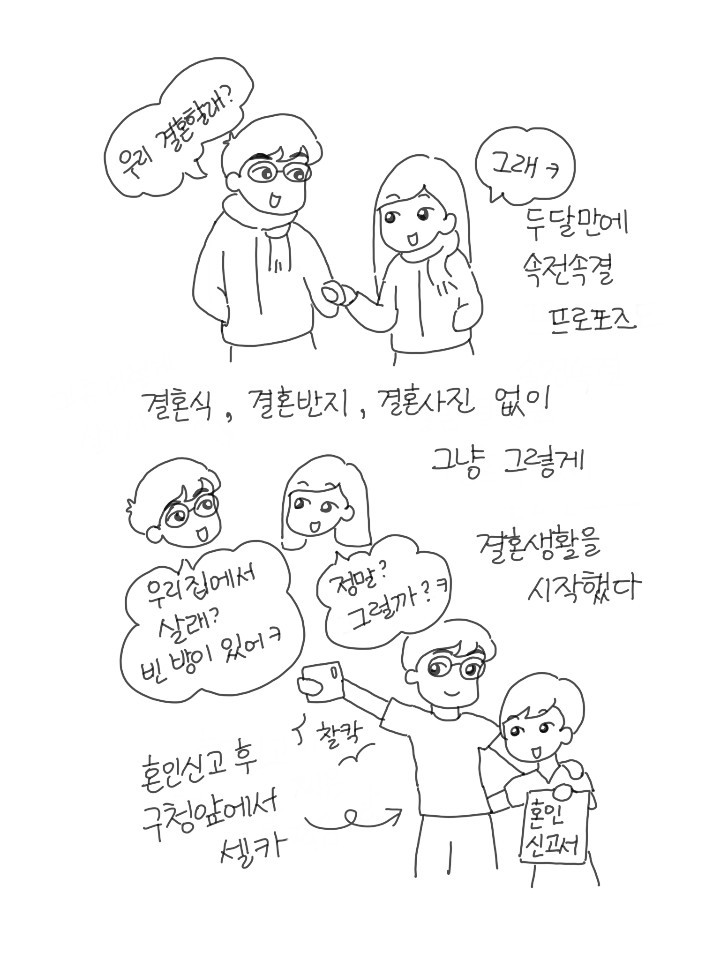 우리 결혼할래?
그래 ㅋ
두달만에
속전속결
프로포즈
결혼식, 결혼반지, 결혼사진 없이
그냥 그렇게
결혼생활을
시작했다
우리집에서
살래?
빈 방이 있어ㅋ
정말?
그럴까?ㅋ
찰칵
혼인신고 후
구청앞에서
셀카
혼인
신고서